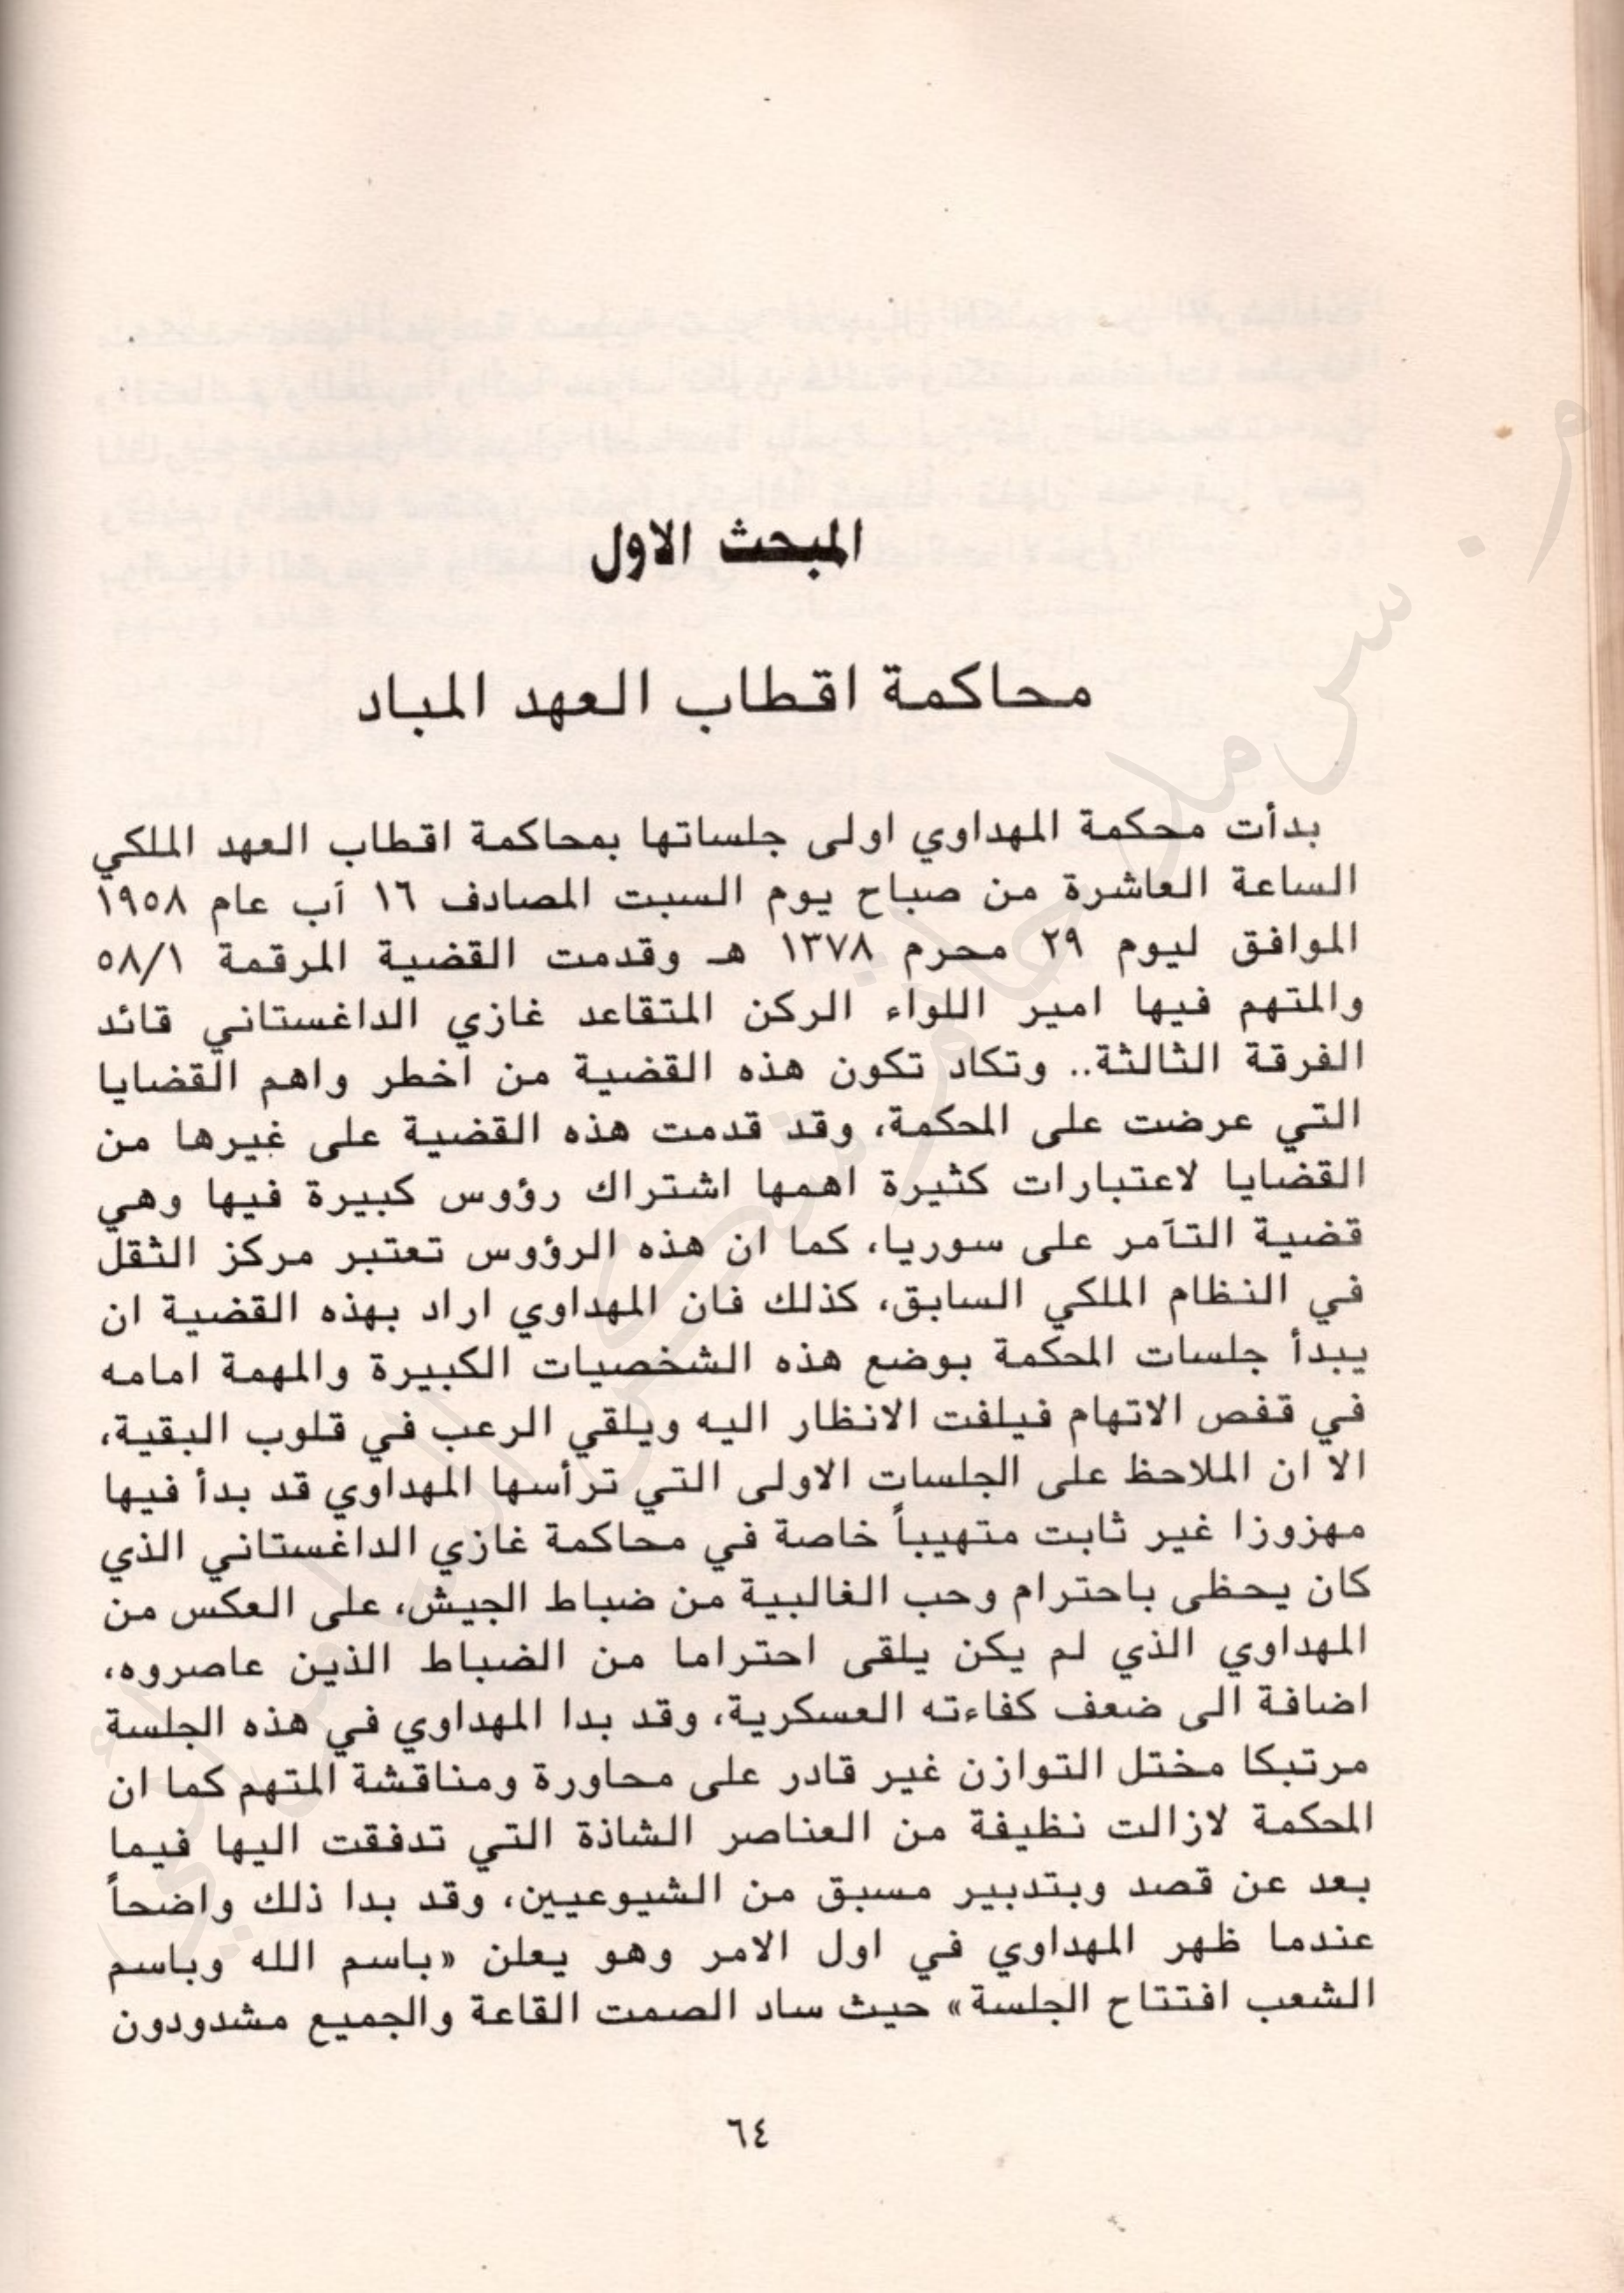 المبحث الاول
محاكمة اقطاب العهد المباد
بدأت محكمة المهداوي اولى جلساتها بمحاكمة اقطاب العهد الملكي
الساعة العاشرة من صباح يوم السبت المصادف ١٦ آب عام ١٩٥٨
الموافق ليوم ٢٩ محرم ١٣٧٨ هـ وقدمت القضية المرقمة ٥٨/١
والمتهم فيها امير اللواء الركن المتقاعد غازي الداغستاني قائد
الفرقة الثالثة.. وتكاد تكون هذه القضية من اخطر واهم القضايا
التي عرضت على المحكمة، وقد قدمت هذه القضية على غيرها من
القضايا لاعتبارات كثيرة اهمها اشتراك رؤوس كبيرة فيها وهي
قضية التآمر على سوريا، كما ان هذه الرؤوس تعتبر مركز الثقل
في النظام الملكي السابق، كذلك فان المهداوي اراد بهذه القضية ان
يبدأ جلسات المحكمة بوضع هذه الشخصيات الكبيرة والمهمة امامه
في قفص الاتهام فيلفت الانظار اليه ويلقي الرعب في قلوب البقية،
الا ان الملاحظ على الجلسات الاولى التي ترأسها المهداوي قد بدأ فيها
مهزوزا غير ثابت متهيباً خاصة في محاكمة غازي الداغستاني الذي
كان يحظى باحترام وحب الغالبية من ضباط الجيش، على العكس من
المهداوي الذي لم يكن يلقى احتراما من الضباط الذين عاصروه،
اضافة الى ضعف كفاءته العسكرية، وقد بدا المهداوي في هذه الجلسة
مرتبكا مختل التوازن غير قادر على محاورة ومناقشة المتهم كما ان
المحكمة لازالت نظيفة من العناصر الشاذة التي تدفقت اليها فيما
بعد عن قصد وبتدبير مسبق من الشيوعيين، وقد بدا ذلك واضحاً
عندما ظهر المهداوي في اول الامر وهو يعلن «باسم الله وباسم
الشعب افتتاح الجلسة» حيث ساد الصمت القاعة والجميع مشدودون
٦٤